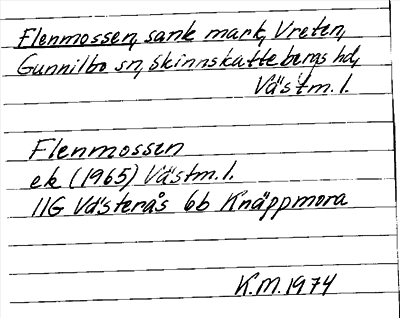 Flenmossen, sank mark, Vreten,
Gunnilbo sn, Skinnskattebergs hd,
Västm. l.
Flenmossen
ek (1965) Västm. l.
11G Västerås 6b Knäppmora
K.M. 1974